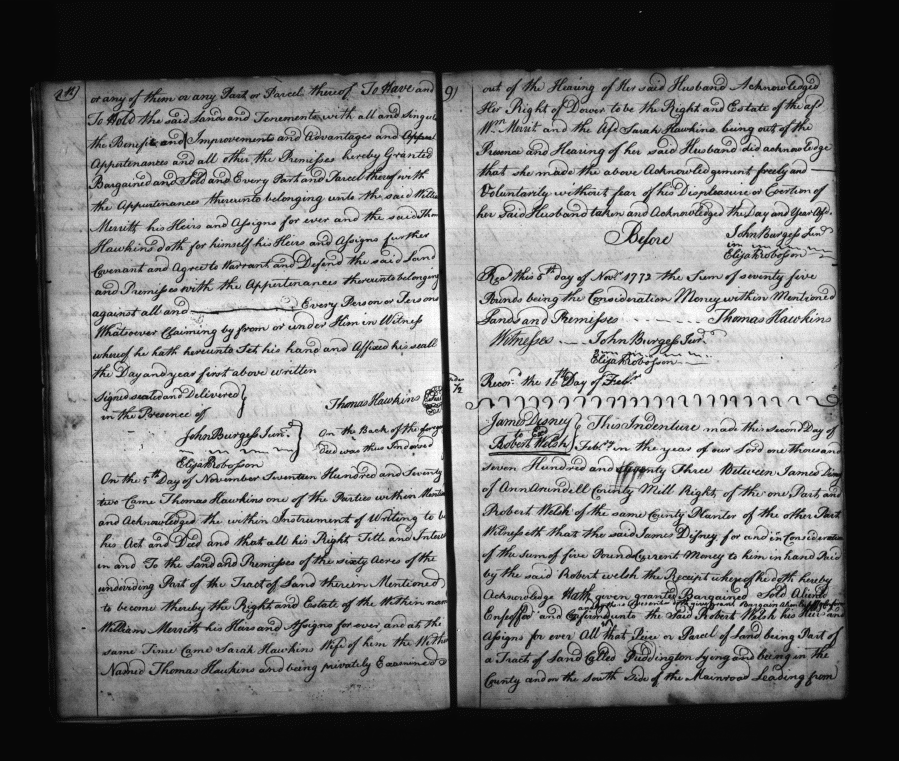 or any of them or any Part or Parcel thereof To Have and
To Hold the said Lands and Tenements with all and Singular
the Benefits and Improvements and Advantages and Appur
Appurtenances and all other the Premisses hereby Granted
Bargained and Sold and Every Part and Parcel thereof with
the Appurtenances thereunto belonging unto the said Willia
Merrith his Heirs and Assigns for ever and the said Thos
Hawkins doth for himself his Heirs and Assigns further
Covenant and Agree to Warrant and Defend the said Land
and Premisses with the Appurtenances thereunto belonging
against all and Every Person or Persons
Whatsoever Claiming by from or under Him in Witness
whereof he hath hereunto Set his hand and Affixed his seall
the Day and year first above written
Signed sealed and Delivered
in the Presence of
Thomas Hawkins
John Burgess Junr.
Elijah Robosson
On the Back of the forego
Deed was thus Indorsed
On the 5th Day of November Seventeen Hundred and Seventy
two Came Thomas Hawkins one of the Parties within Mention
and Acknowledged the within Instrument of Writing to be
his Act and Deed and that all his Right Title and Interest
in and To the Land and Premisses of the sixty Acres of the
undividing Part of the Tract of Land therein Mentioned
to become thereby the Right and Estate of the Within nam
William Merrith his Heirs and Assigns for ever and at the
same Time Came Sarah Hawkins Wife of him the Within
Named Thomas Hawkins and being privately Examined
9)
out of the Hearing of Her said Husband Acknowledged
Her Right of Dower to be the Right and Estate of the afd
Wm Merrit and the Afd Sarah Hawkins being out of the
Presence and Hearing of her said Husband did acknowledge
that she made the above Acknowledgement freely and
Voluntarily without fear of his Displeasure or Coertion of
her Said Husband taken and Acknowledged the Day and Year Afd.
Before
John Burgess Junr
Elijah Robosson
Recd this 5th day of Novr 1772 the Sum of seventy five
Pounds being the Consideration Money within Mentioned
Lands and Premisses Thomas Hawkins
Witnesses John Burgess Junr.
Elijah Robosson
Recor. the 16th Day of Febr
James Disney
to
Robert Welsh
This Indenture made this second Day of
Febry in the year of our Lord one thousand
seven Hundred and seventy Three Between James Disney
of Ann Arundell County Mill Right of the one Part and
Robert Welsh of the same County Planter of the other Part
Witnesseth that the said James Disney for and in Consideration
of the Sum of five Pounds Current Money to him in hand Paid
by the said Robert Welsh the Receipt whereof he doth hereby
Acknowledge Hath given granted Bargained Sold Aliend
Enfeoffed and Confirmd
unto the Said Robert Welsh his Heirs and
Assigns for ever All that Peice or Parcel of Land being Part of
a Tract of Land Called Puddington Lying and being in the
County and on the South Side of the Mainroad Leading from